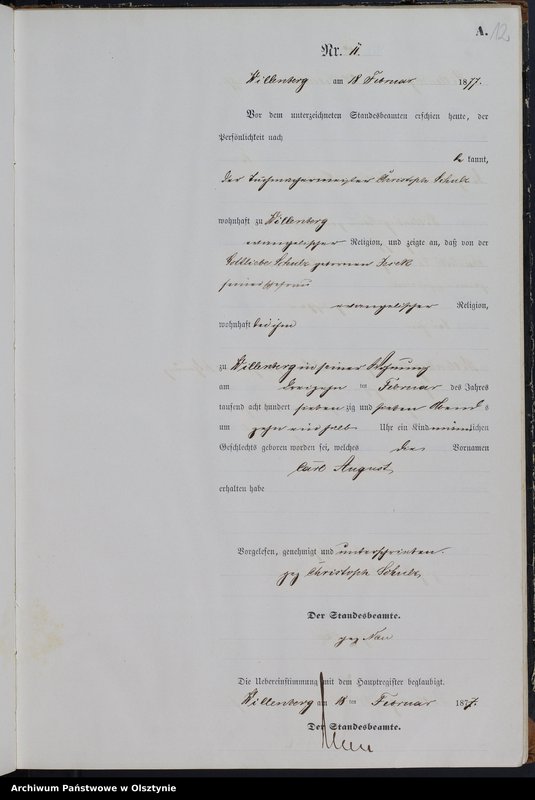 A.
12
Nr. 11.
Willenberg am 18 Februar 1877.
Vor dem unterzeichneten Standesbeamten erschien heute, der
Persönlichkeit nach
be kannt,
der Tuchmachermeister Christoph Schulz
wohnhaft zu Willenberg
evangelischer Religion, und zeigte an, daß von der
Gottliebe Schulz geborenen
seiner Ehefrau
evangelischer Religion,
wohnhaft bei ihm
zu Willenberg in seiner Wohnung
am dreizehn ten Februar des Jahres
tausend acht hundert sieben zig und sieben Abend s
um zehn ein halb Uhr ein Kind männlichen
Geschlechts geboren worden sei, welches die Vornamen
Carl August
erhalten habe
Vorgelesen, genehmigt und unterschrieben.
gez Christoph Schulz
Der Standesbeamte.
gez
Die Uebereinstimmung mit dem Hauptregister beglaubigt.
Willenberg am 18 ten Februar 1877.
Der Standesbeamte.
Archiwum Państwowe w Olsztynie